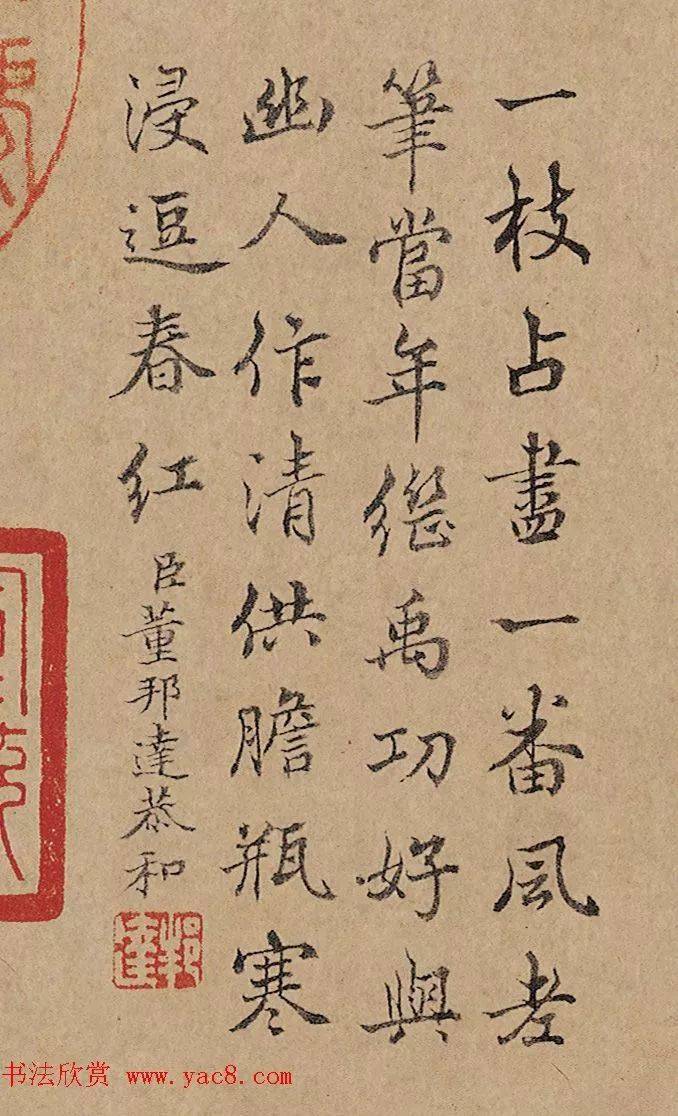 一枝占盡一番風老
筆當年繼禹功好與
幽人作清供膽瓶寒
浸逗春紅
臣董邦達恭和
邦達
书法欣赏 www.yac8.com